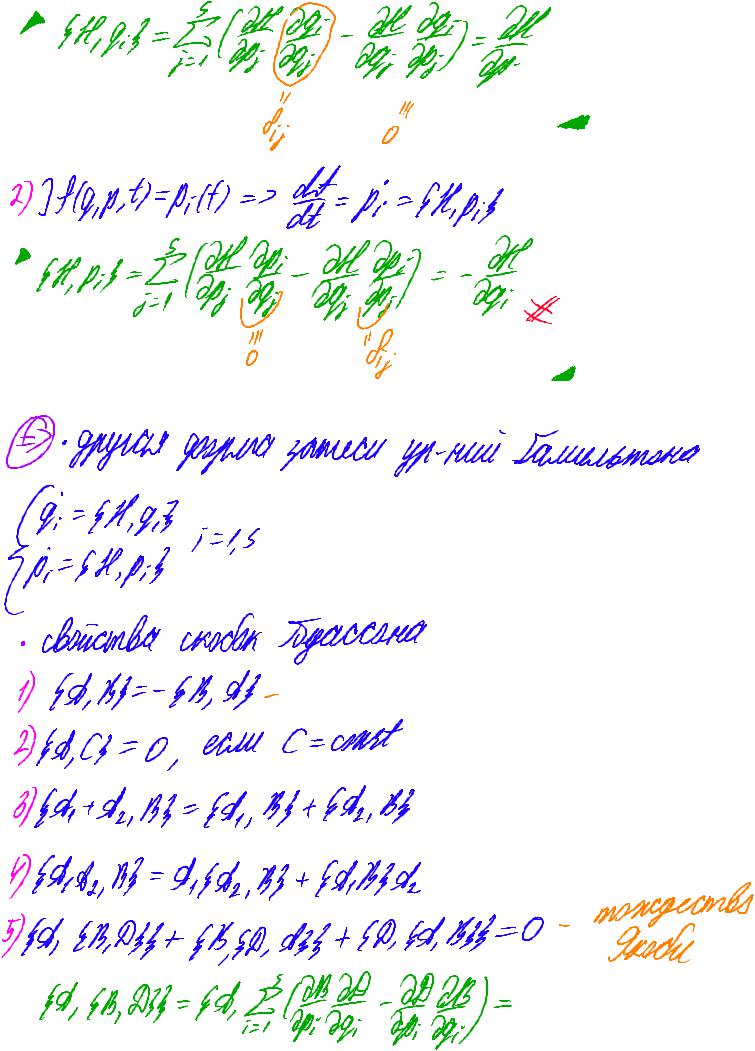 {H, qᵢ} = Σⱼ₌₁ˢ (∂H/∂pⱼ ∂qᵢ/∂qⱼ − ∂H/∂qⱼ ∂qᵢ/∂pⱼ) = ∂H/∂pᵢ
δᵢⱼ 0
2) ] f(q,p,t) = pᵢ(t) => df/dt = ṗᵢ = {H, pᵢ}
{H, pᵢ} = Σⱼ₌₁ˢ (∂H/∂pⱼ ∂pᵢ/∂qⱼ − ∂H/∂qⱼ ∂pᵢ/∂pⱼ) = − ∂H/∂qᵢ
0 δᵢⱼ
• другая форма записи ур-ний Гамильтона
q̇ᵢ = {H, qᵢ}
ṗᵢ = {H, pᵢ} i = 1, s
• свойства скобок Пуассона
1) {A, B} = − {B, A} −
2) {A, C} = 0, если C = const
3) {A₁ + A₂, B} = {A₁, B} + {A₂, B}
4) {A₁A₂, B} = A₁{A₂, B} + {A₁B}A₂
5) {A, {B, D}} + {B, {D, A}} + {D, {A, B}} = 0 − тождество
Якоби
{A, {B, D}} = {A, Σᵢ₌₁ˢ (∂B/∂pᵢ ∂D/∂qᵢ − ∂D/∂pᵢ ∂B/∂qᵢ) =